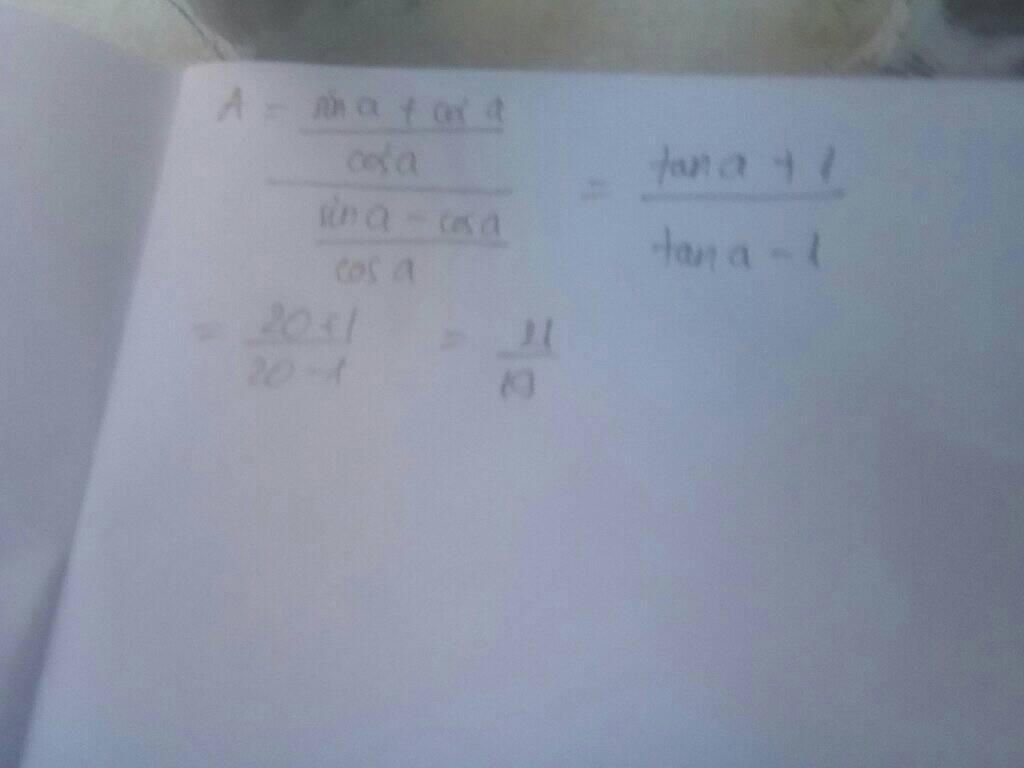 A = sin a + cos a / cos a / sin a - cos a / cos a = tan a + 1 / tan a - 1
= 20+1 / 20-1 = 21 / 19